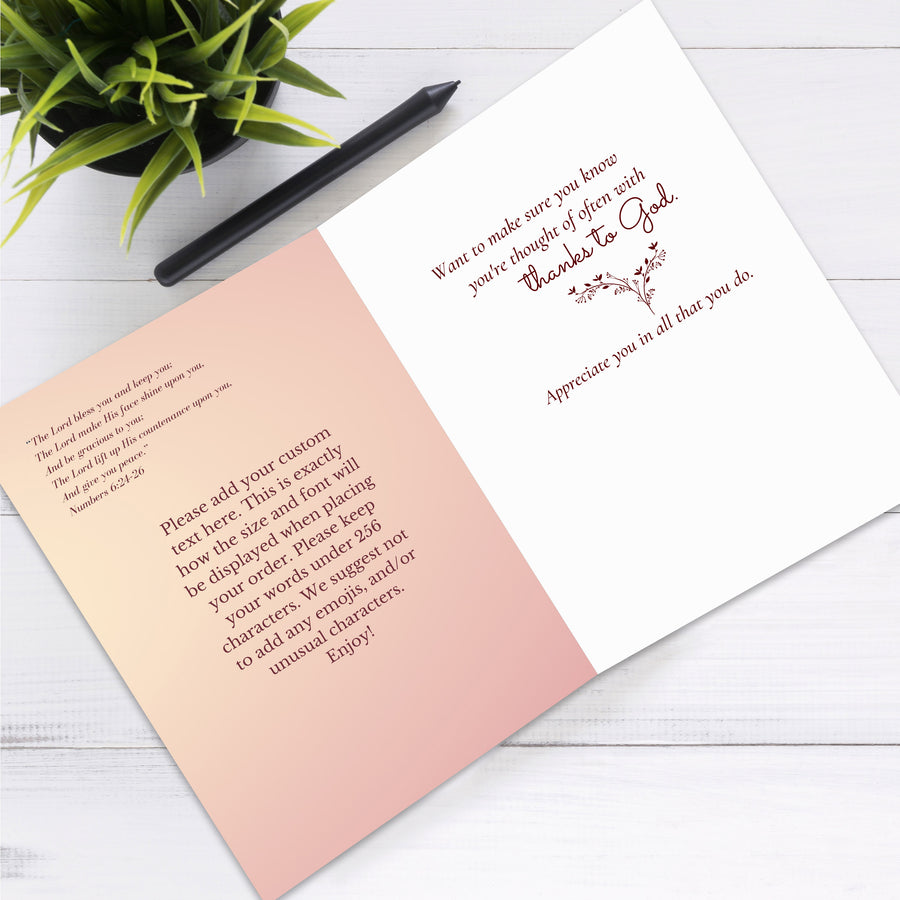 "The Lord bless you and keep you;
The Lord make His face shine upon you,
And be gracious to you;
The Lord lift up His countenance upon you,
And give you peace."
Numbers 6:24-26
Please add your custom
text here. This is exactly
how the size and font will
be displayed when placing
your order. Please keep
your words under 256
characters. We suggest not
to add any emojis, and/or
unusual characters.
Enjoy!
Want to make sure you know
you're thought of often with
thanks to God.
Appreciate you in all that you do.